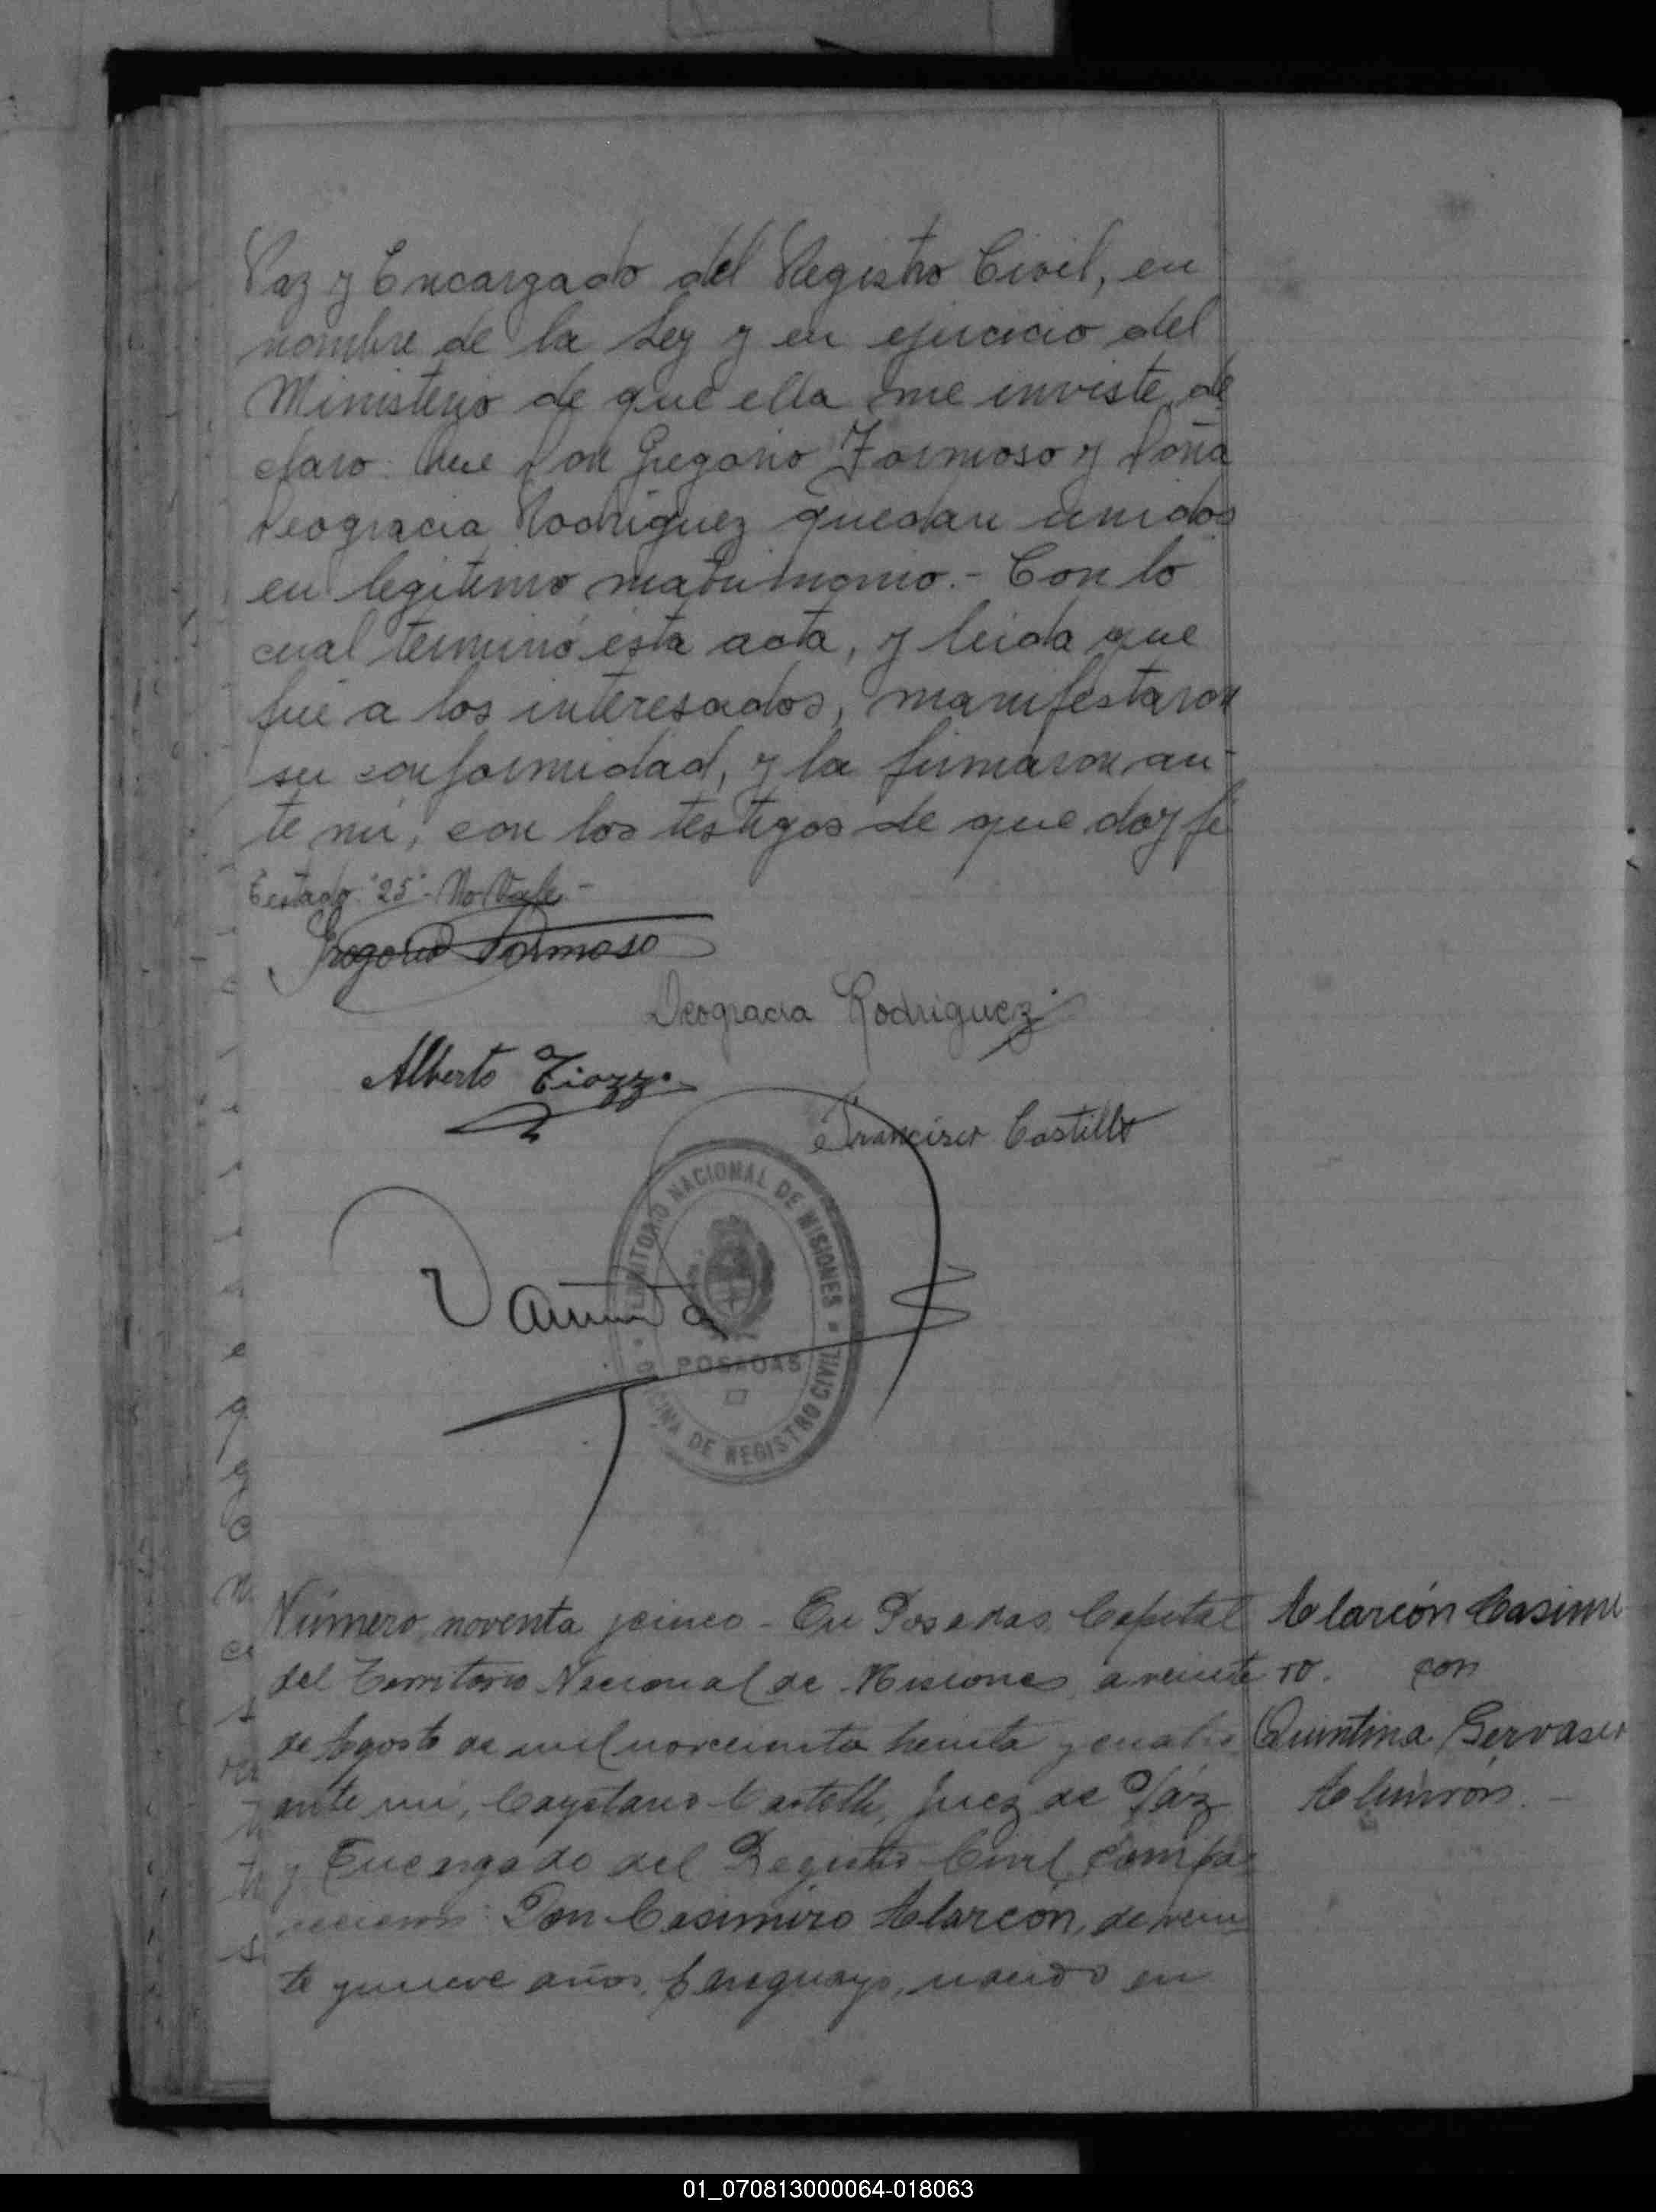 Paz y Encargado del Registro Civil, en
nombre de la Ley y en ejercicio del
Ministerio de que ella me inviste, de
claro: Que Don Gregorio Formoso y Doña
Deogracia Rodriguez quedan unidos
en legitimo matrimonio.- Con lo
cual terminó esta acta, y leida que
fué a los interesados, manifestaron
su conformidad, y la firmaron an-
te mi, con los testigos de que doy fé
Testado: "25"- No Vale.-
Gregorio Formoso
Deogracia Rodriguez
Alberto Tiozzo
Francisco Castillo
TERRITORIO NACIONAL DE MISIONES
POSADAS
OFICINA DE REGISTRO CIVIL
Número noventa y cinco - En Posadas, Capital
del Territorio Nacional de Misiones, a veinte
de Agosto de mil novecientos treinta y cuatro
ante mi, Cayetano Castelli, Juez de Páz
y Encargado del Registro Civil, compa
recieron: Don Casimiro Alarcón, de vein
te y nueve años, paraguayo, nacido en
Alarcón Casimi
ro. con
Quintina Gervasia
Almirón. -
01_070813000064-018063